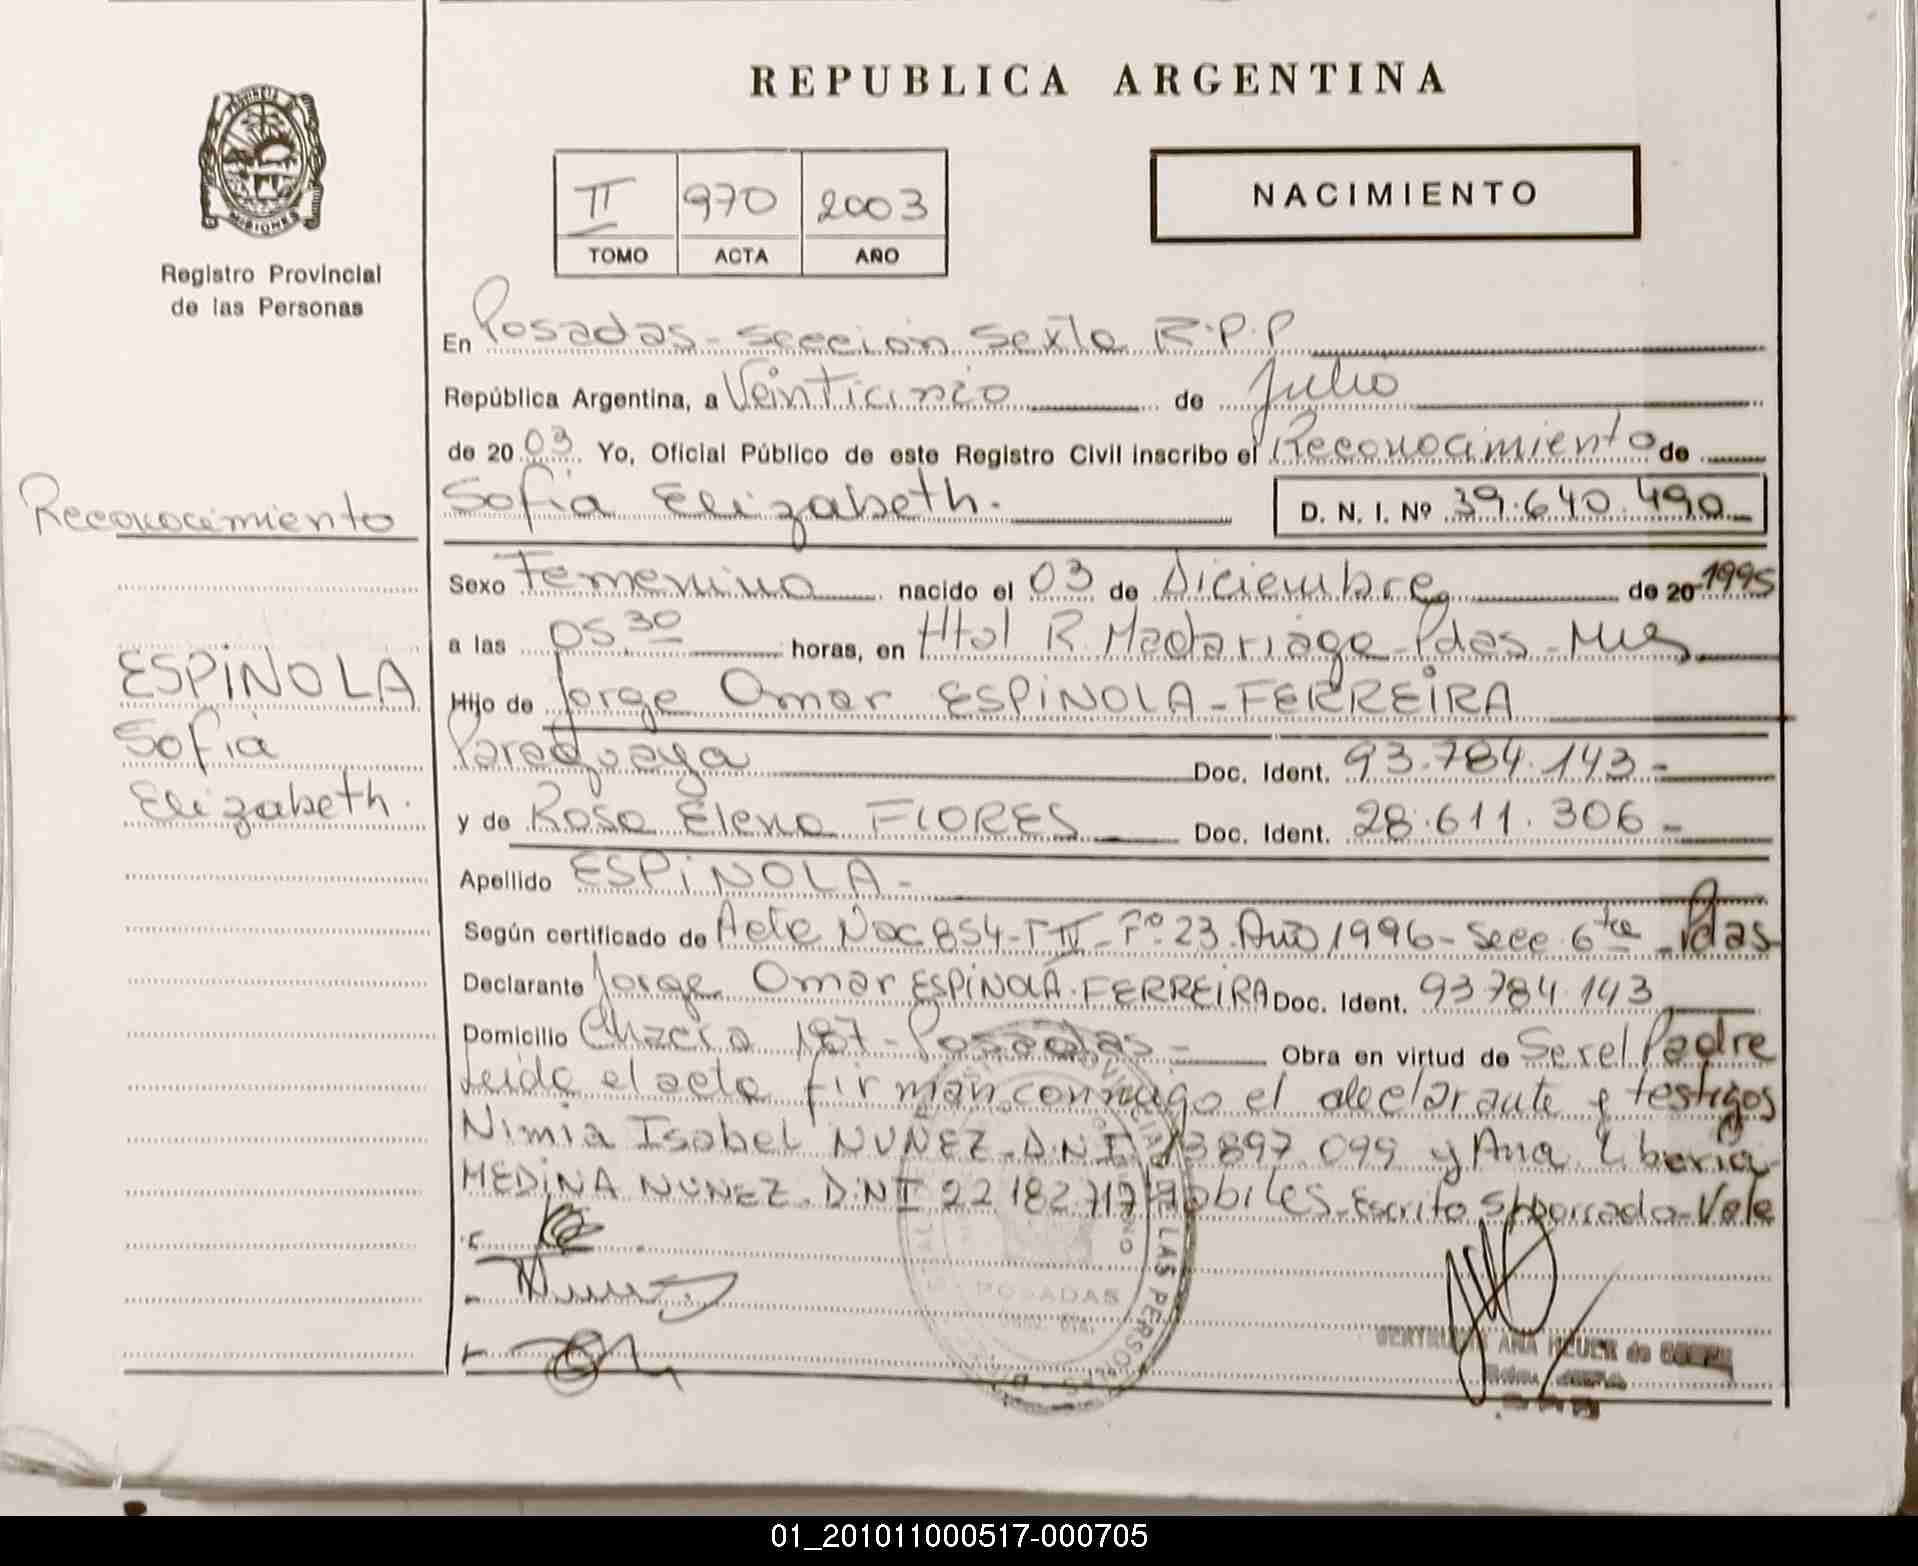 REPUBLICA ARGENTINA
PROVINCIA DE
MISIONES
Registro Provincial
de las Personas
II 970 2003
TOMO ACTA AÑO
NACIMIENTO
En Posadas - Seccion Sexta R.P.P
República Argentina, a Veinticinco de Julio
de 20 03 Yo, Oficial Público de este Registro Civil inscribo el Reconocimiento de
Sofia Elizabeth. D. N. I. Nº 39.640.490
Reconocimiento
Sexo Femenino nacido el 03 de Diciembre de 20 1995
a las 05,30 horas, en Htal R. Madariaga - Pdas - Mis
ESPINOLA
Sofia
Elizabeth.
Hijo de Jorge Omar ESPINOLA - FERREIRA
Paraguaya Doc. Ident. 93.784.143 -
y de Rosa Elena FLORES Doc. Ident. 28.611.306 -
Apellido ESPINOLA -
Según certificado de Acta Nac 854 - T III - Fº 23 Año 1996 - Secc 6ta - Pdas
Declarante Jorge Omar ESPINOLA - FERREIRA Doc. Ident. 93 784 143
Domicilio 187 - Posadas - Obra en virtud de Ser el Padre
Leida el acta firman conmigo el declarante y testigos
Nimia Isabel NUÑEZ - D.N.I. 13897 099 y Ana Liboria
MEDINA NUNEZ - D.N.I 22 182 717 Habiles - Escrito S/borrado - Vale
POSADAS
LAS PERSONAS
ANA HEUER de
01_201011000517-000705